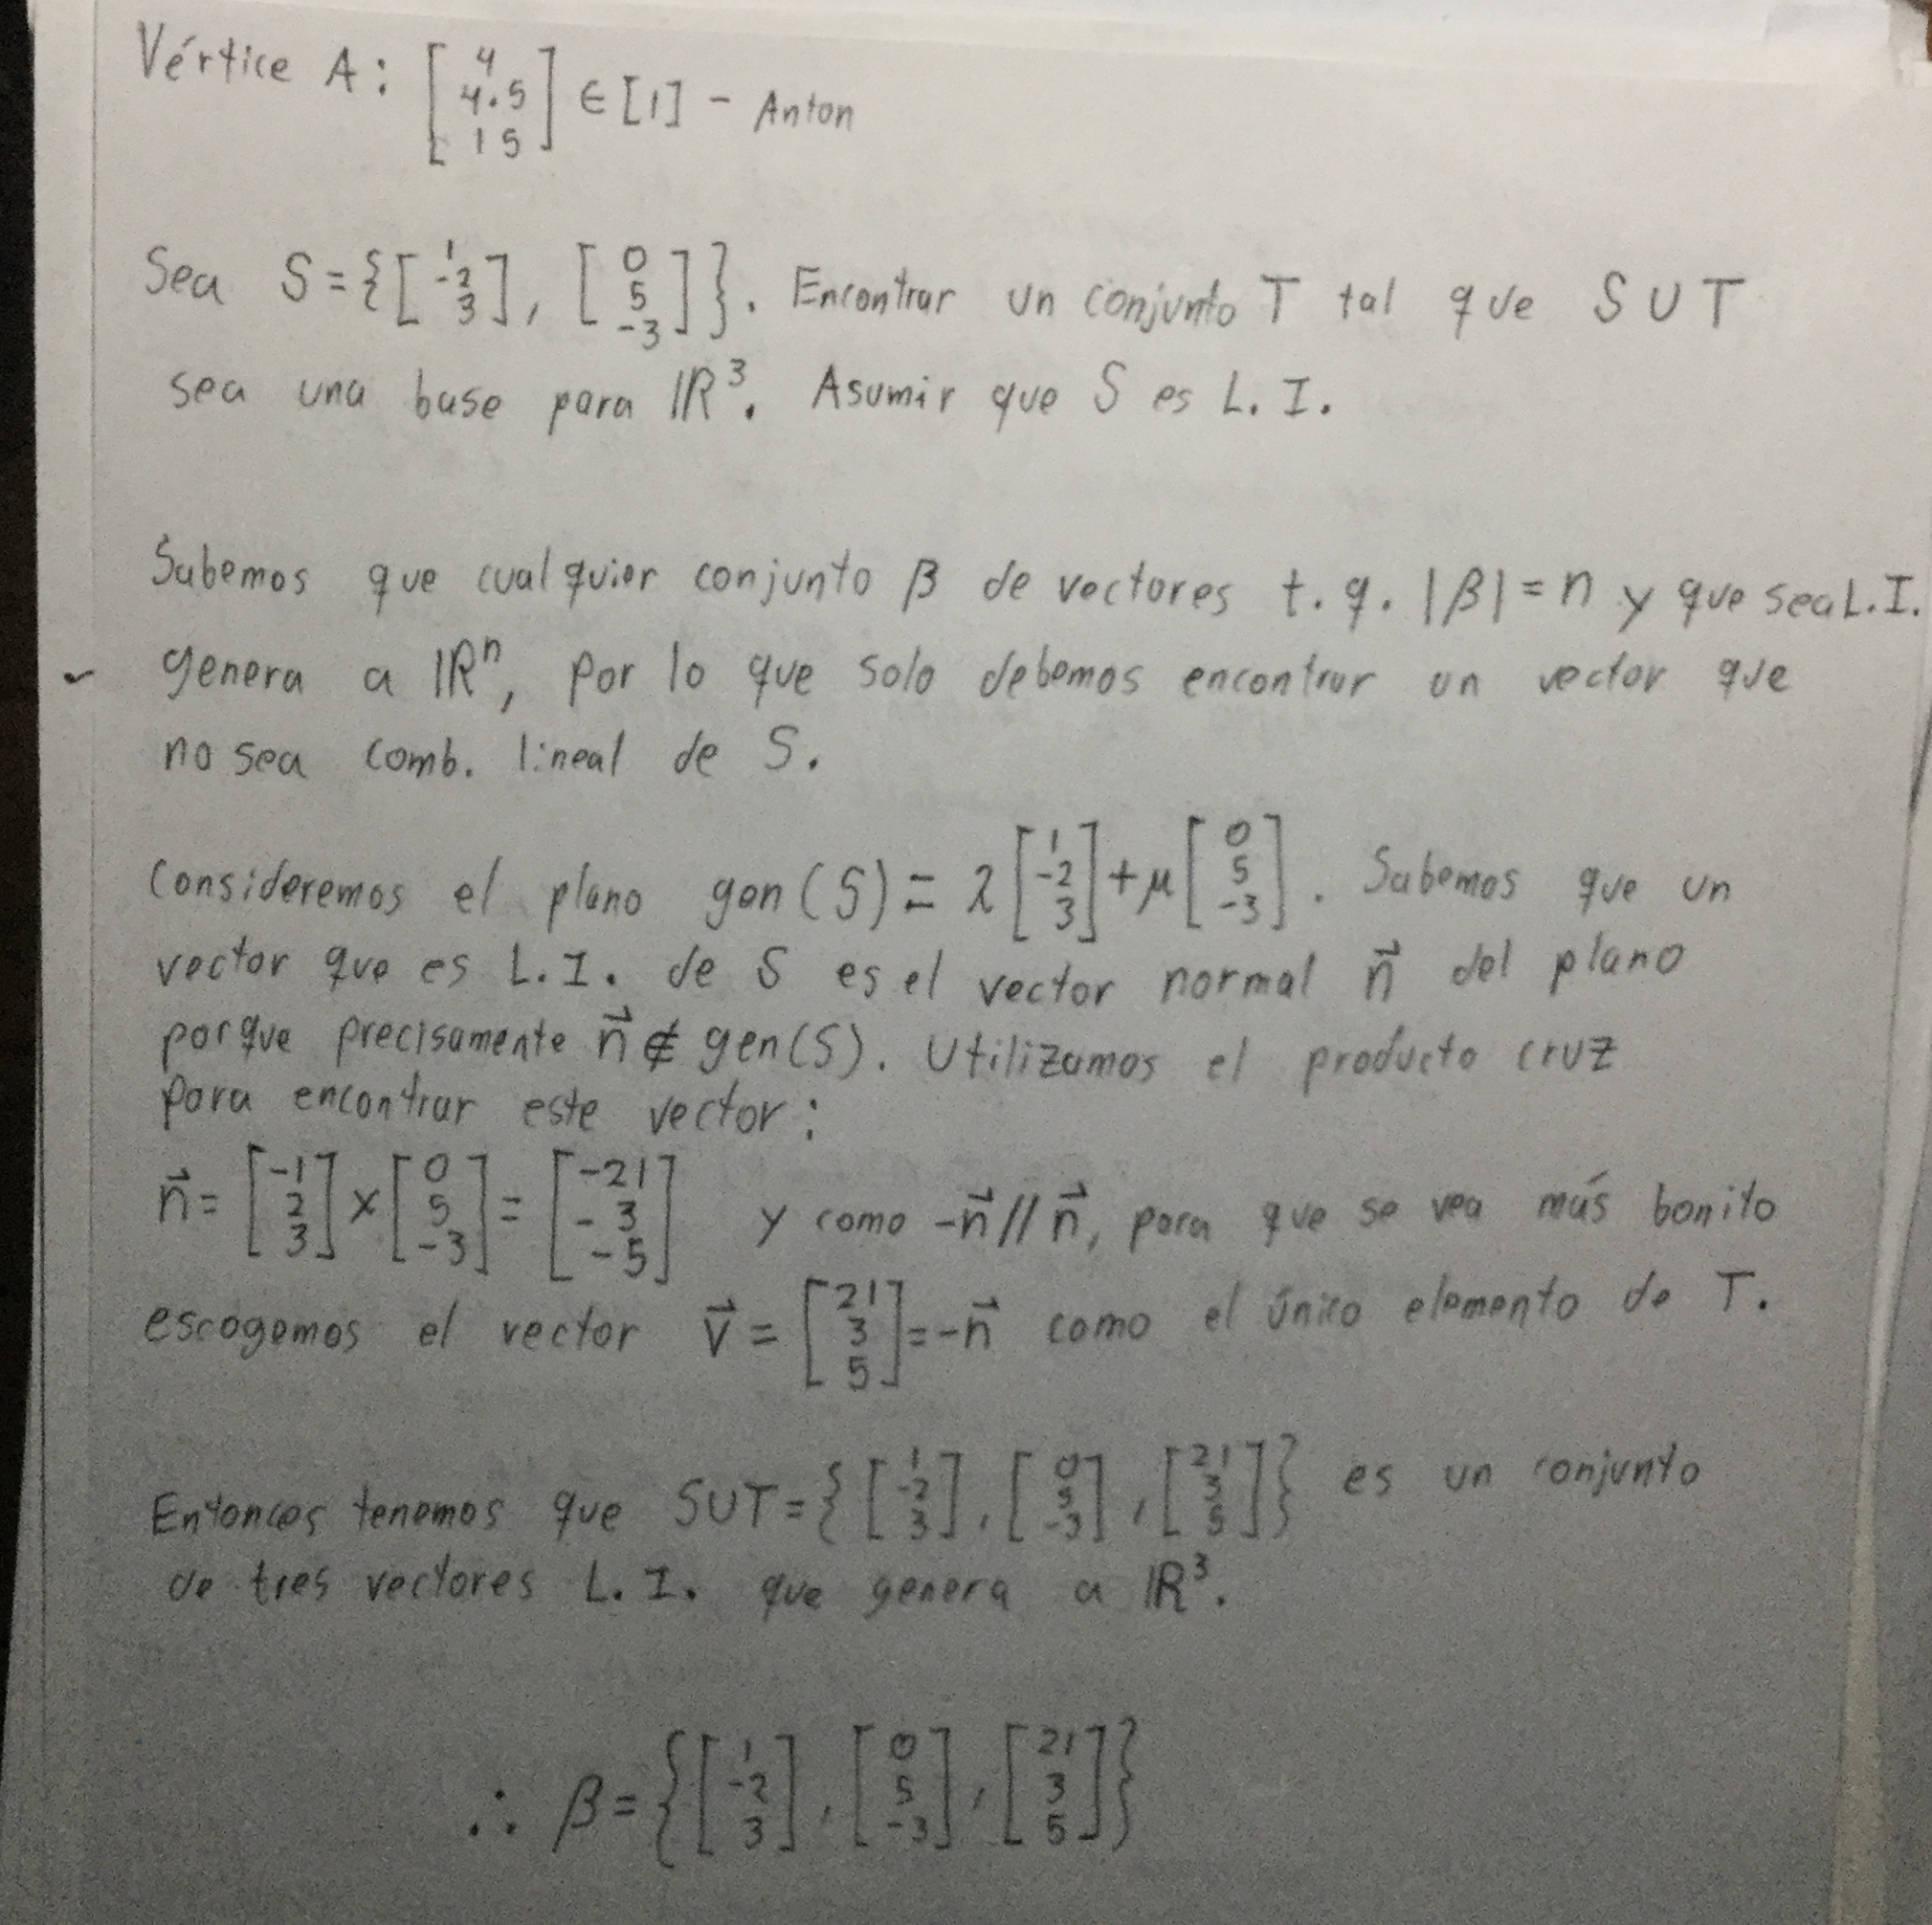 Vértice A: [4 4.5 15] ∈ [1] - Anton
Sea S = {[1 -2 3], [0 5 -3]}. Encontrar un conjunto T tal que S ∪ T
sea una base para ℝ³. Asumir que S es L. I.
Sabemos que cualquier conjunto β de vectores t. q. |β| = n y que sea L. I.
genera a ℝⁿ, por lo que solo debemos encontrar un vector que
no sea comb. lineal de S.
Consideremos el plano gen(S) = λ[1 -2 3] + μ[0 5 -3]. Sabemos que un
vector que es L. I. de S es el vector normal n⃗ del plano
porque precisamente n⃗ ∉ gen(S). Utilizamos el producto cruz
para encontrar este vector:
n⃗ = [-1 2 3] × [0 5 -3] = [-21 -3 -5] y como -n⃗ // n⃗, para que se vea más bonito
escogemos el vector v⃗ = [21 3 5] = -n⃗ como el único elemento de T.
Entonces tenemos que S∪T = {[1 -2 3], [0 5 -3], [21 3 5]} es un conjunto
de tres vectores L. I. que genera a ℝ³.
∴ β = {[1 -2 3], [0 5 -3], [21 3 5]}